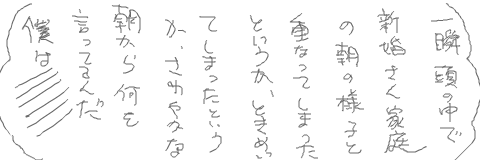 一瞬頭の中で
新婚さん家庭
の朝の様子と
重なってしまった
というか、ときめい
てしまったという
か、さわやかな
朝から何を
言ってるんだ
僕は